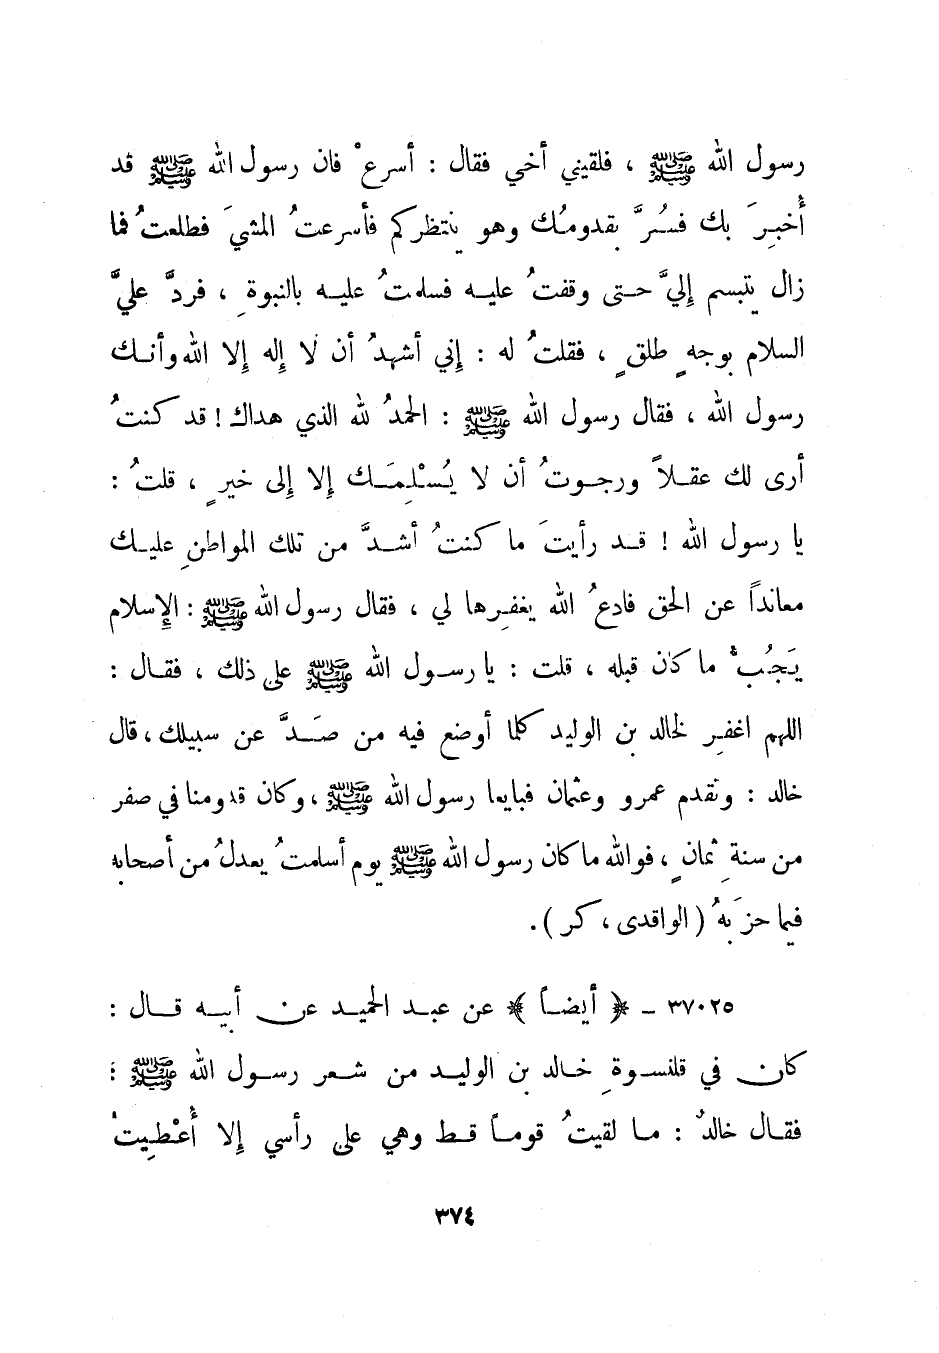 رسول الله ﷺ ، فلقيني أخي فقال : أسرعْ فان رسول الله ﷺ قد
أُخبِرَ بك فسُرَّ بقدومُك وهو ينتظركم فأسرعتُ المشيَ فطلعتُ فما
زال يتبسم إليَّ حتى وقفتُ عليه فسلمتُ عليه بالنبوةِ ، فردَّ عليَّ
السلام بوجهٍ طلقٍ ، فقلتُ له : إني أشهدُ أن لا إله إلا الله وأنك
رسول الله ، فقال رسول الله ﷺ : الحمدُ لله الذي هداك ! قد كنتُ
أرى لك عقلاً ورجوتُ أن لا يُسْلِمَك إلا إلى خيرٍ ، قلتُ :
يا رسول الله ! قد رأيتَ ما كنتُ أشدَّ من تلك المواطنِ عليك
معانداً عن الحق فادعُ الله يغفِرها لي ، فقال رسول الله ﷺ : الإسلام
يَجُبُّ ما كان قبله ، قلت : يا رسول الله ﷺ على ذلك ، فقال :
اللهم اغفِر لخالد بن الوليد كلما أوضع فيه من صَدَّ عن سبيلك ، قال
خالد : وتقدم عمرو وعثمان فبايعا رسول الله ﷺ ، وكان قدومنا في صفر
من سنةِ ثمانٍ ، فوالله ما كان رسول الله ﷺ يوم أسلمتُ يعدلُ من أصحابه
فيما حزَبهُ ( الواقدى ، كر ) .
٣٧٠٢٥ ـ ﴿ أيضاً ﴾ عن عبد الحميد عن أبيه قال :
كان في قلنسوةِ خالد بن الوليد من شعر رسول الله ﷺ :
فقال خالدٌ : ما لقيتُ قوماً قط وهي على رأسي إلا أُعْطِيتُ
٣٧٤